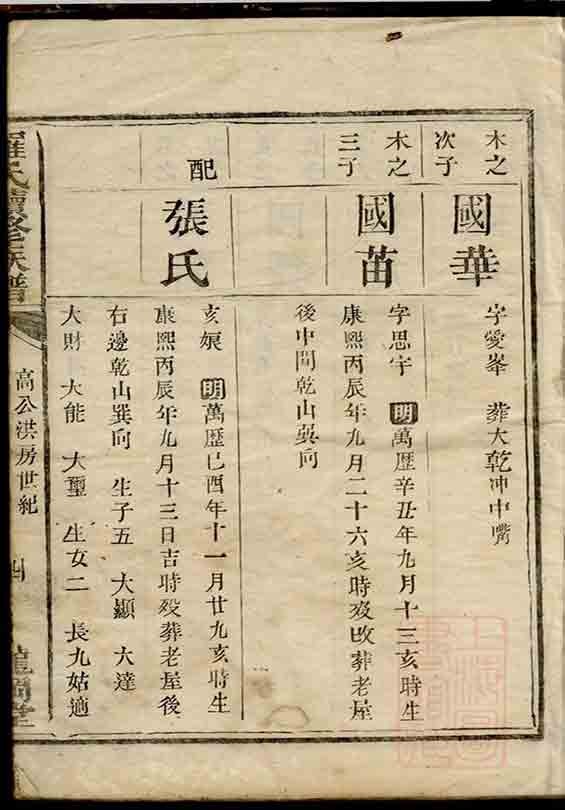 木之
次子
國華
字愛峯 葬大乾冲中嘴
木之
三子
國苗
字思宇 明萬歷辛丑年九月十三亥時生
康熙丙辰年九月二十六亥時歿改葬老屋
後中間乾山巽向
配
張氏
亥娘 明萬歷己酉年十一月廿九亥時生
康熙丙辰年九月十三日吉時歿葬老屋後
右邊乾山巽向 生子五 大顯 大達
大財 大能 大璽 生女二 長九姑適
羅氏續修族譜
高公洪房世紀